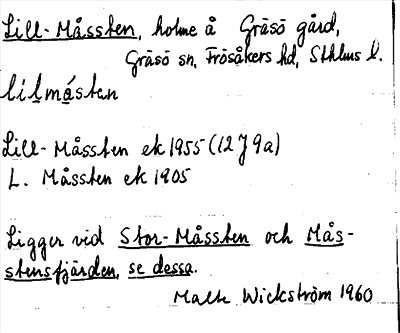 Lill-Måssten, holme å Gräsö gård,
Gräsö sn, Frösåkers hd, Sthlms l.
lilmá̱stan
Lill-Måssten ek 1955 (12J9a)
L. Måssten ek 1905
Ligger vid Stor-Måssten och Mås-
stensfjärden, se dessa.
Malte Wickström 1960